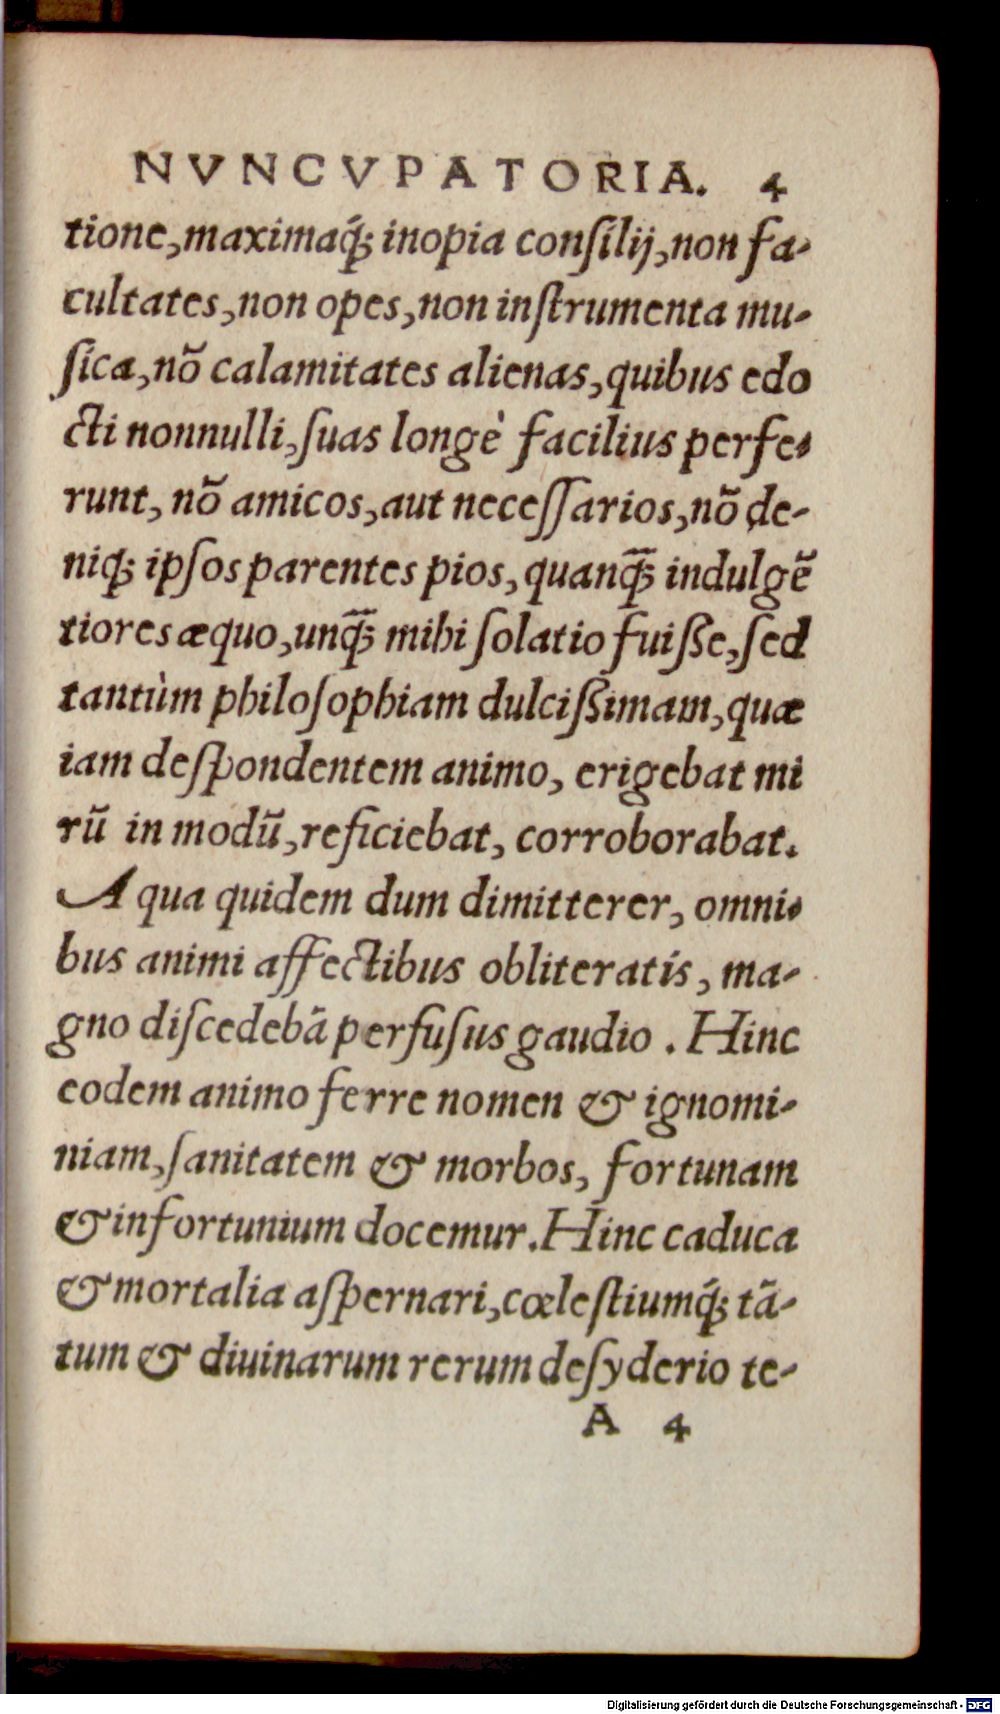 NVNCVPATORIA. 4
tione,maximaq́; inopia conſilij,non fa-
cultates,non opes,non inſtrumenta mu-
ſica,nõ calamitates alienas,quibus edo
cti nonnulli,ſuas longè facilius perfe-
runt, nõ amicos,aut neceſſarios,nõ de-
niq; ipſos parentes pios, quanq̃; indulgẽ
tiores æquo,unq̃; mihi ſolatio fuiſſe,ſed
tantùm philoſophiam dulciſſimam,quæ
iam deſpondentem animo, erigebat mi
rũ in modũ,reficiebat, corroborabat.
A qua quidem dum dimitterer, omni-
bus animi affectibus obliteratis, ma-
gno diſcedebã perfuſus gaudio . Hinc
eodem animo ferre nomen & ignomi-
niam,ſanitatem & morbos, fortunam
& infortunium docemur.Hinc caduca
& mortalia aſpernari,cœleſtiumq́; tã-
tum & diuinarum rerum deſyderio te-
A 4
Digitalisierung gefördert durch die Deutsche Forschungsgemeinschaft - DFG